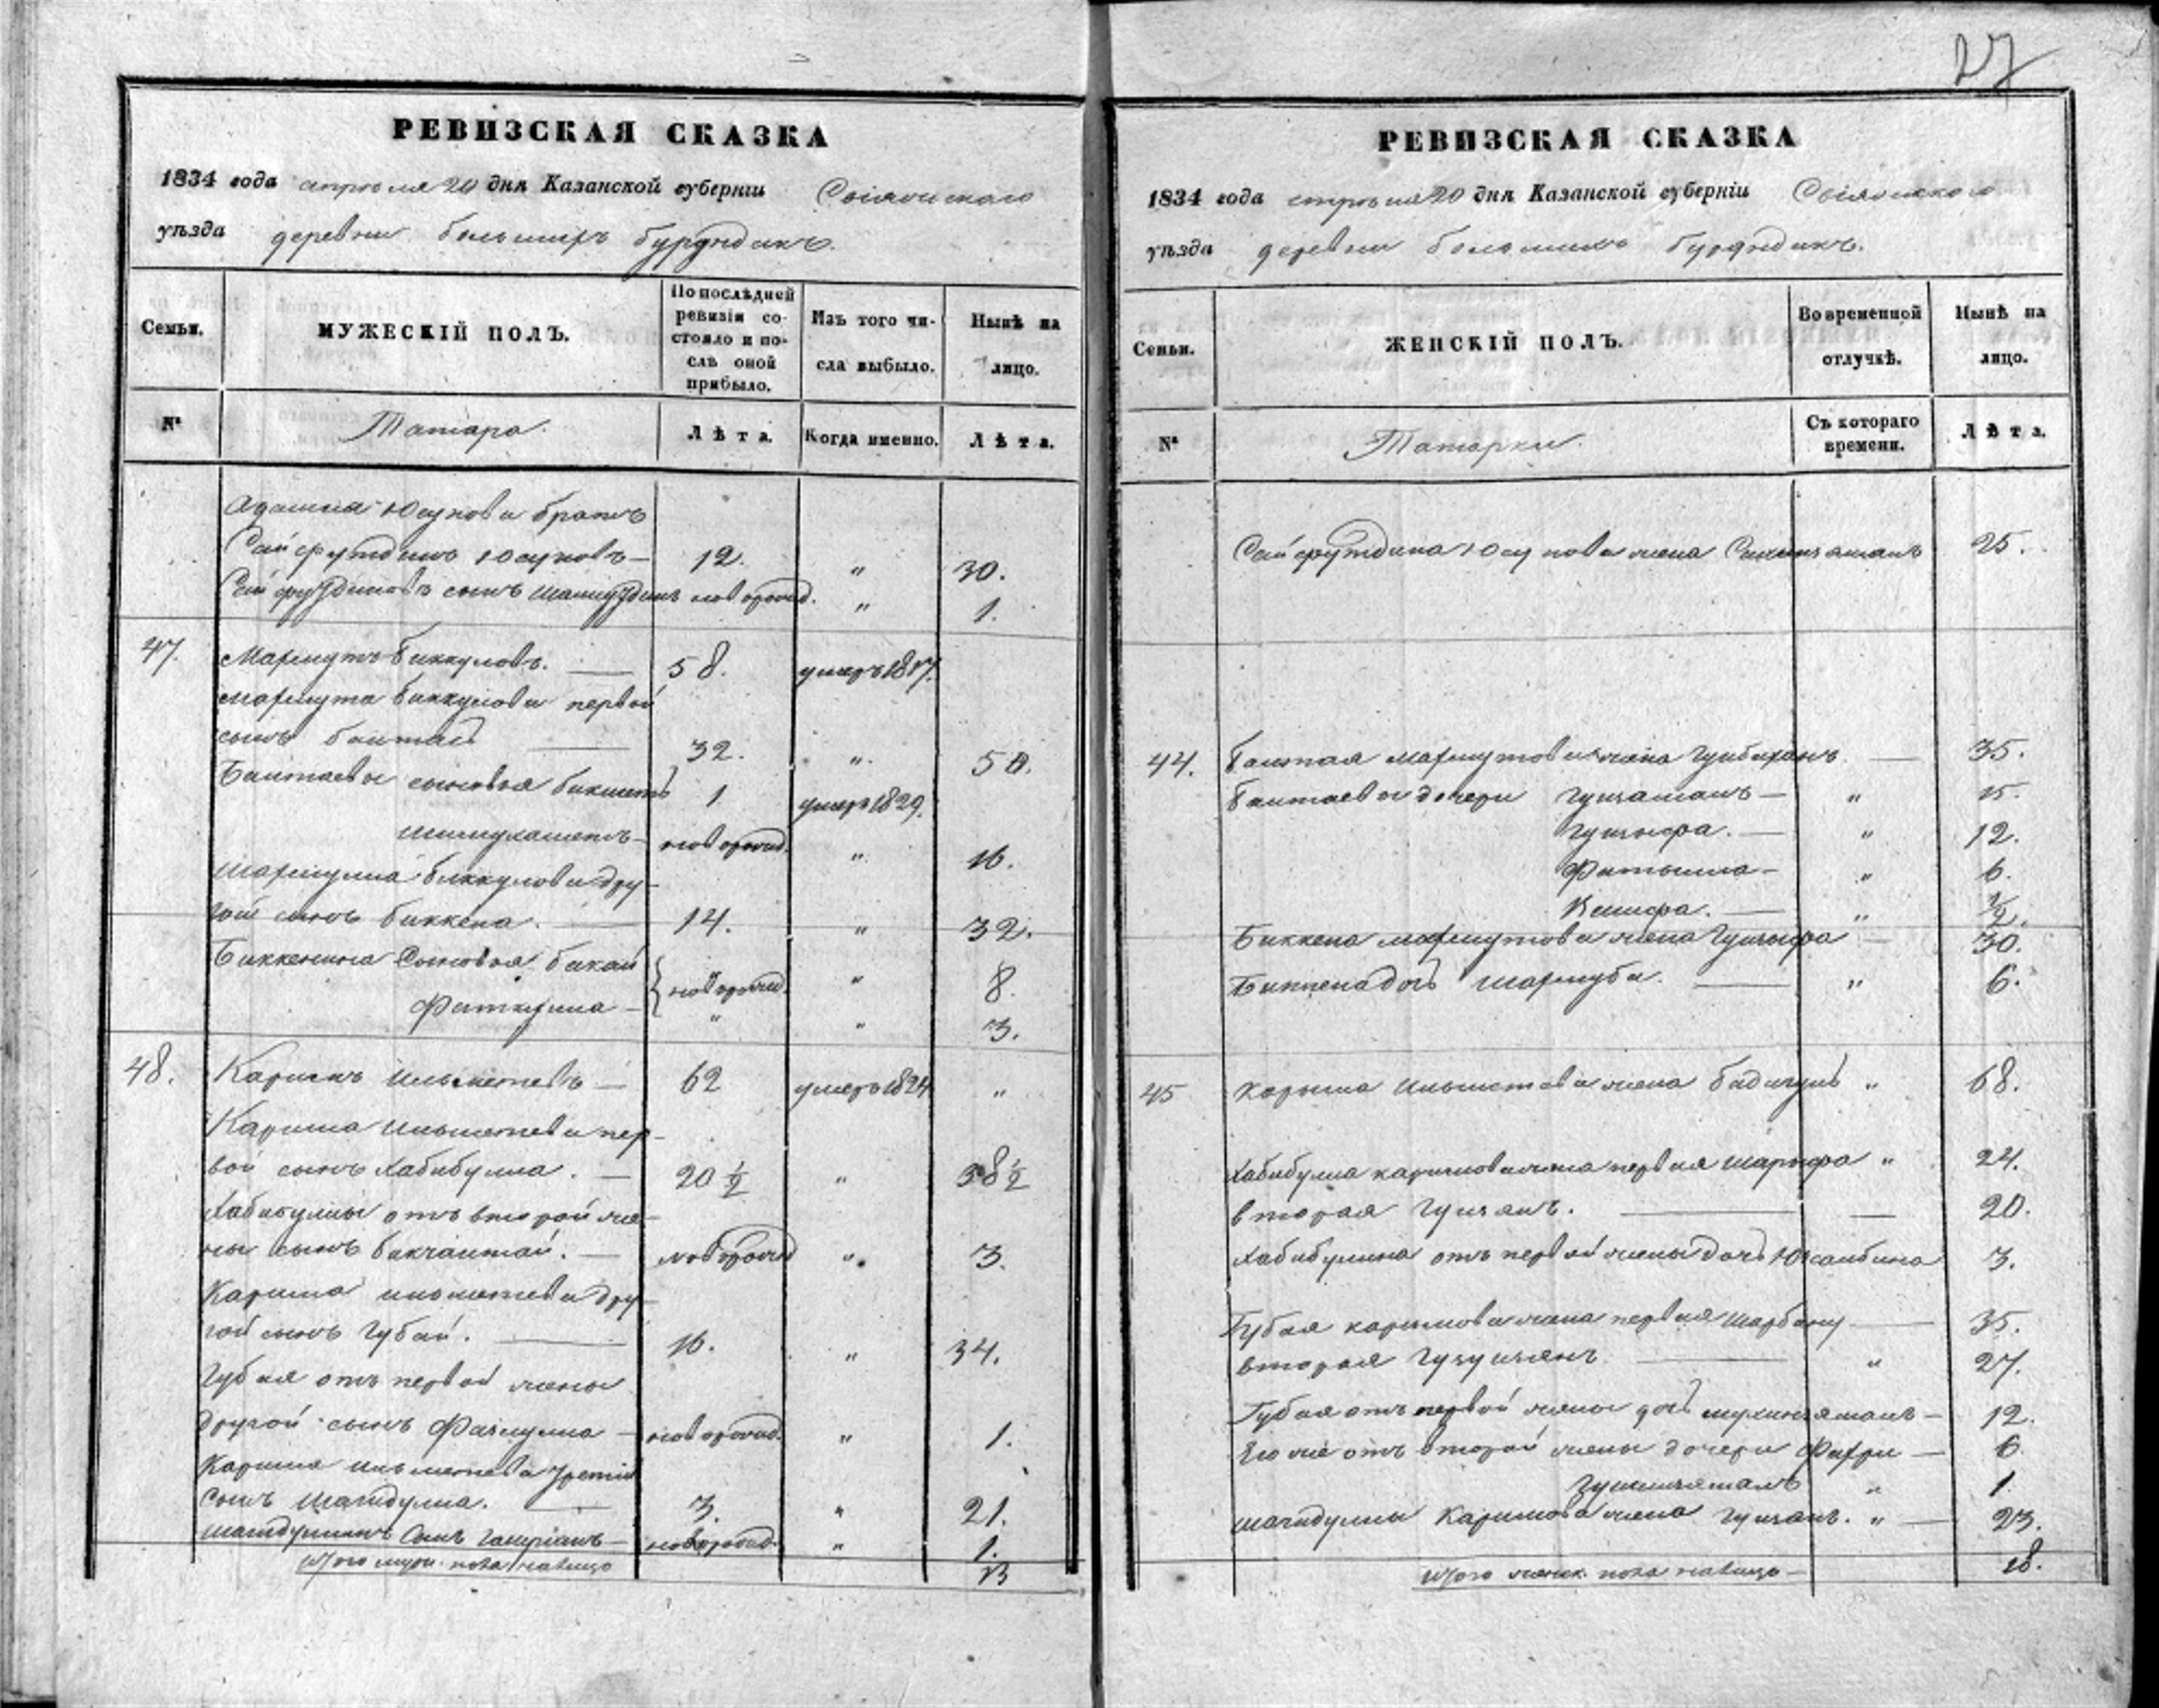 27
РЕВИЗСКАЯ СКАЗКА
1834 года апреля 20 дня Казанской губерніи Свіяжскаго
уѣзда деревни большихъ бурундукъ.
Семьи.
МУЖЕСКІЙ ПОЛЪ.
По послѣдней ревизіи состояло и послѣ оной прибыло.
Изъ того числа выбыло.
Нынѣ на лицо.
№
Татара.
Лѣта.
Когда именно.
Лѣта.
Юсупова братъ
Сайфутдинъ Юсуповъ — 12. " 30.
Сайфутдиновъ сынъ новорожд. " 1.
47. Махмутъ Биккуловъ. — 58. умеръ 1817.
Махмута Биккулова первой
сынъ баитай — 32. " 50.
Баитаевы сыновья бикметъ 1 умеръ 1829.
новорожд. " 16.
Биккулова дру-
гой сынъ биккена. — 14. " 32.
Биккенина сыновья бикай { новорожд. " 8.
Фаткулла — " " 3.
48. Каримъ Ильметевъ — 62 умеръ 1824 "
Карима Ильметева пер-
вой сынъ Хабибулла. — 20 ½ " 38 ½
Хабибуллы отъ второй же-
ны сынъ бакчантай. — новорожд " 3.
Карима ильметева дру-
гой сынъ Губай. — 16. " 34.
Губая отъ первой жены
другой сынъ Фазлулла — новорожд. " 1.
Карима ильметева третій
сынъ Шагидулла. — 3. " 21.
сынъ — новорожд. " 1.
Итого муж. пола налицо 13
РЕВИЗСКАЯ СКАЗКА
1834 года апреля 20 дня Казанской губерніи Свіяжскаго
уѣзда деревни большихъ бурундукъ.
Семьи.
ЖЕНСКІЙ ПОЛЪ.
Во временной отлучкѣ.
Нынѣ на лицо.
№
Татарки.
Съ котораго времени.
Лѣта.
Сайфутдина Юсупова жена 25.
44. Баитая Махмутова жена Гулбиханъ — 35.
Баитаевы дочери — " 15.
— " 12.
Фатыма — " 6.
— " ½.
Биккена махмутова жена " — 30.
дочь Махмуба. — " 6.
45 Карыма Ильметева жена " 68.
Хабибулла каримова жена первая Шарифа " 24.
вторая Гулзянъ. — 20.
Хабибуллина отъ первой жены дочь 3.
Губая каримова жена первая Шарбану — 35.
вторая — " 27.
Губая отъ первой жены дочь — 12.
Его же отъ второй жены дочери Фахри — 6.
" 1.
Шагидуллы Каримова жена Гулзянъ. " — 23.
Итого женск. пола налицо — 18.